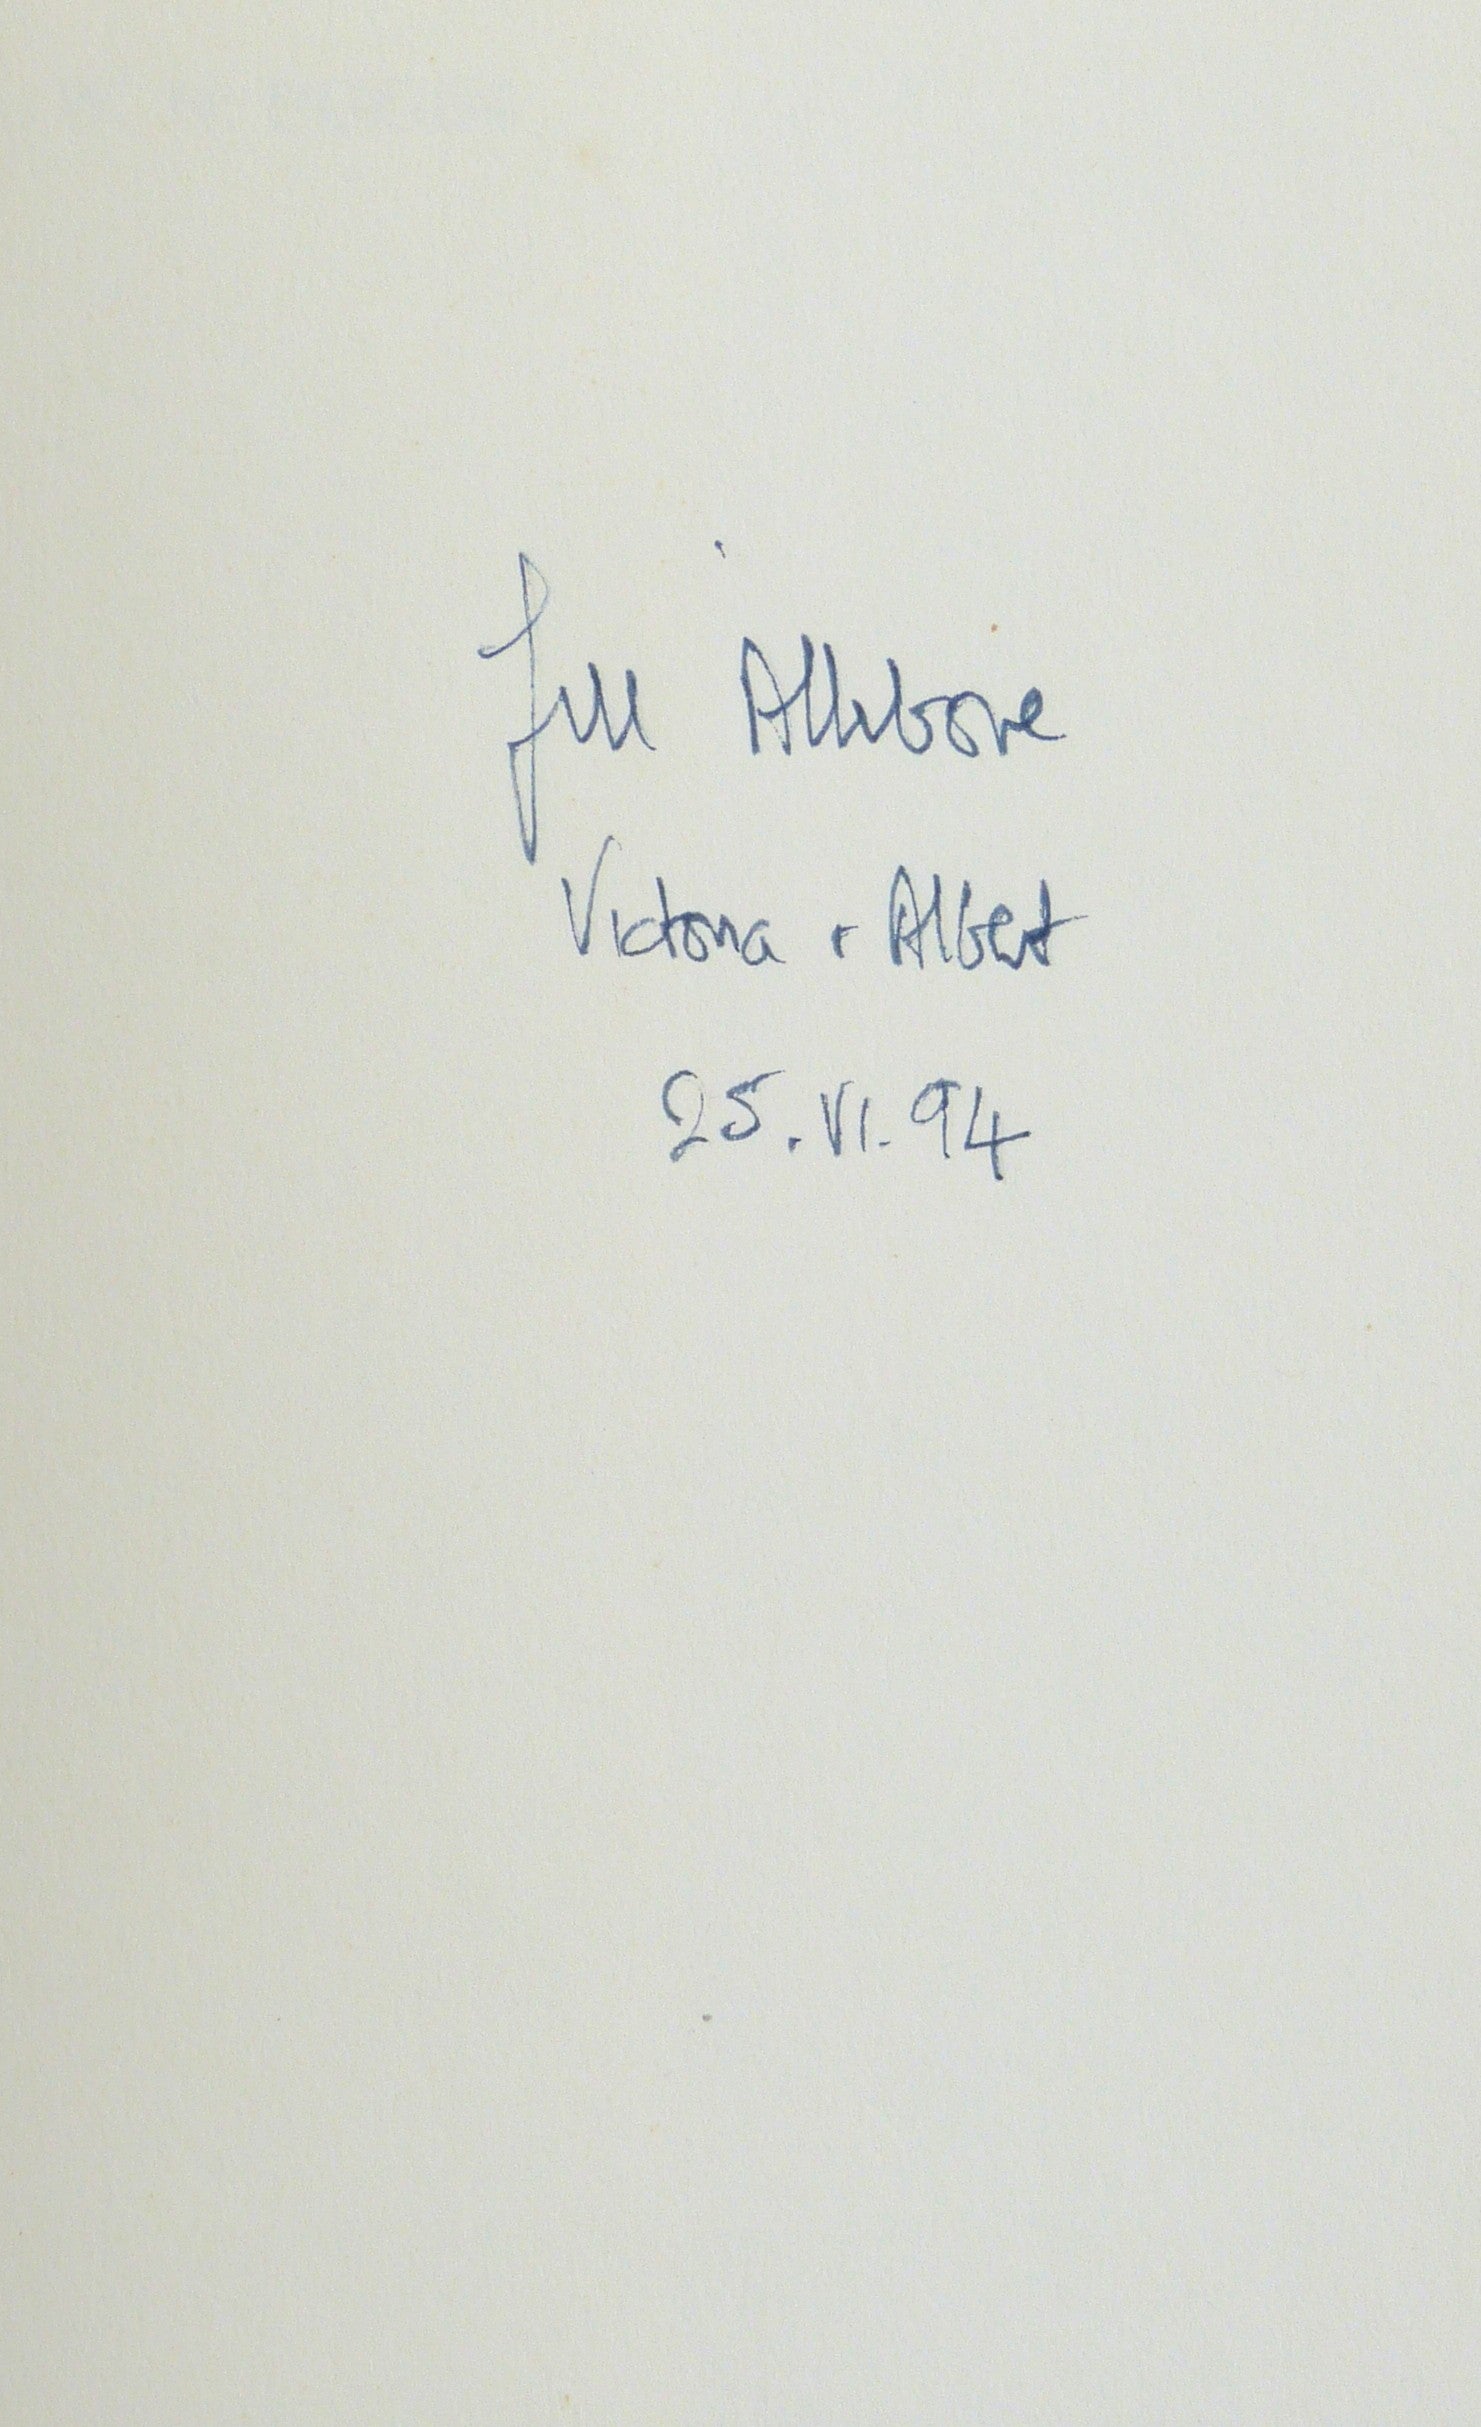 Jill Allibone
Victoria + Albert
25.VI.94